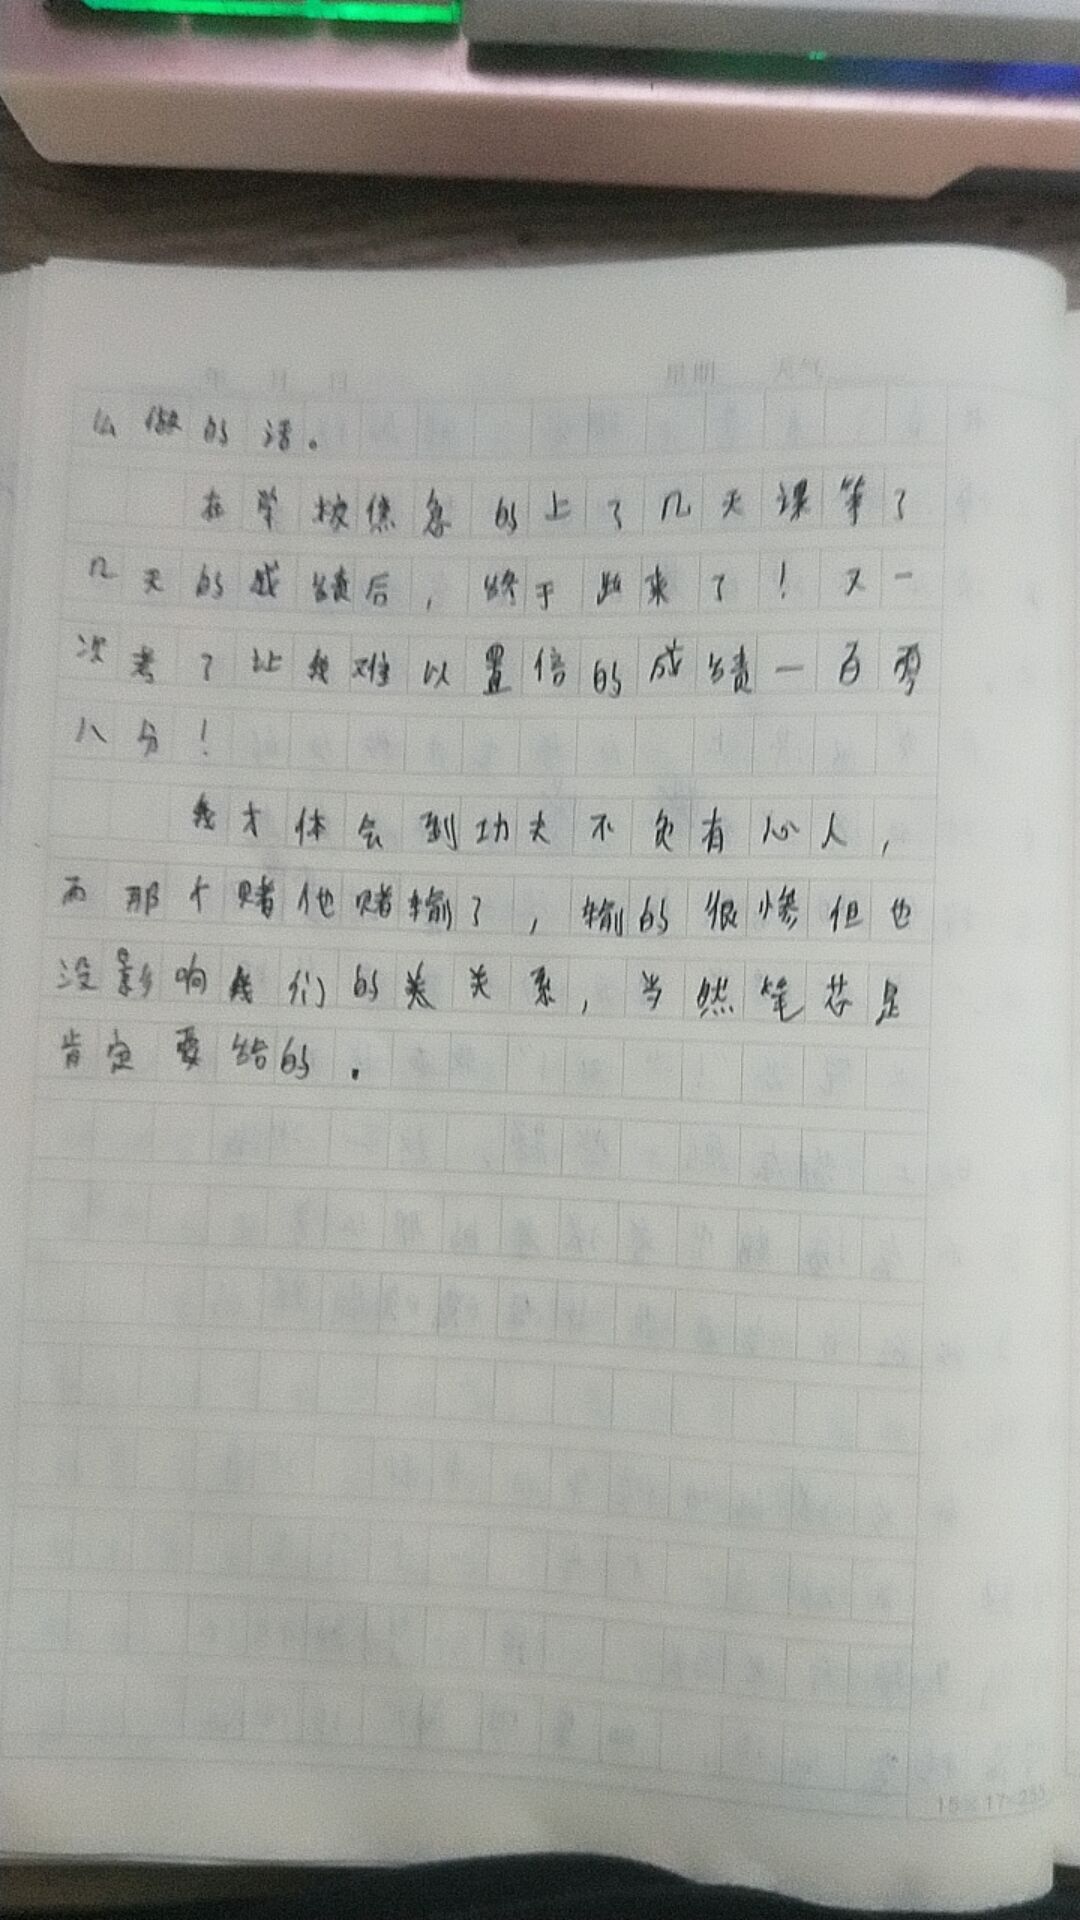 年 月 日 星期 天气
么做的话。
在学校焦急的上了几天课等了
几天的成绩后，终于出来了！又一
次考了让我难以置信的成绩一百零
八分！
我才体会到功夫不负有心人，
而那个赌他赌输了，输的很惨但也
没影响我们的关关系，当然笔芯是
肯定要给的.